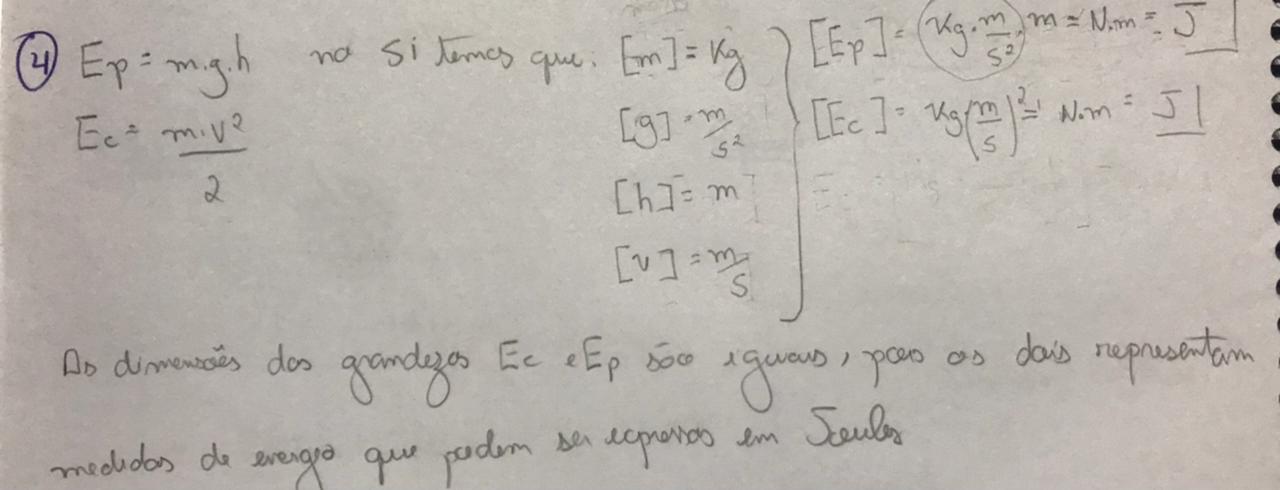 4 Ep = m.g.h no Si temos que: [m] = Kg [Ep] = Kg.m/s².m = N.m = J
Ec = m.v²/2 [g] = m/s² [Ec] = Kg(m/s)² = N.m = J
[h] = m
[v] = m/s
As dimensões das grandezas Ec e Ep são iguais, pois os dois representam
medidas de energia que podem ser expressas em Joules